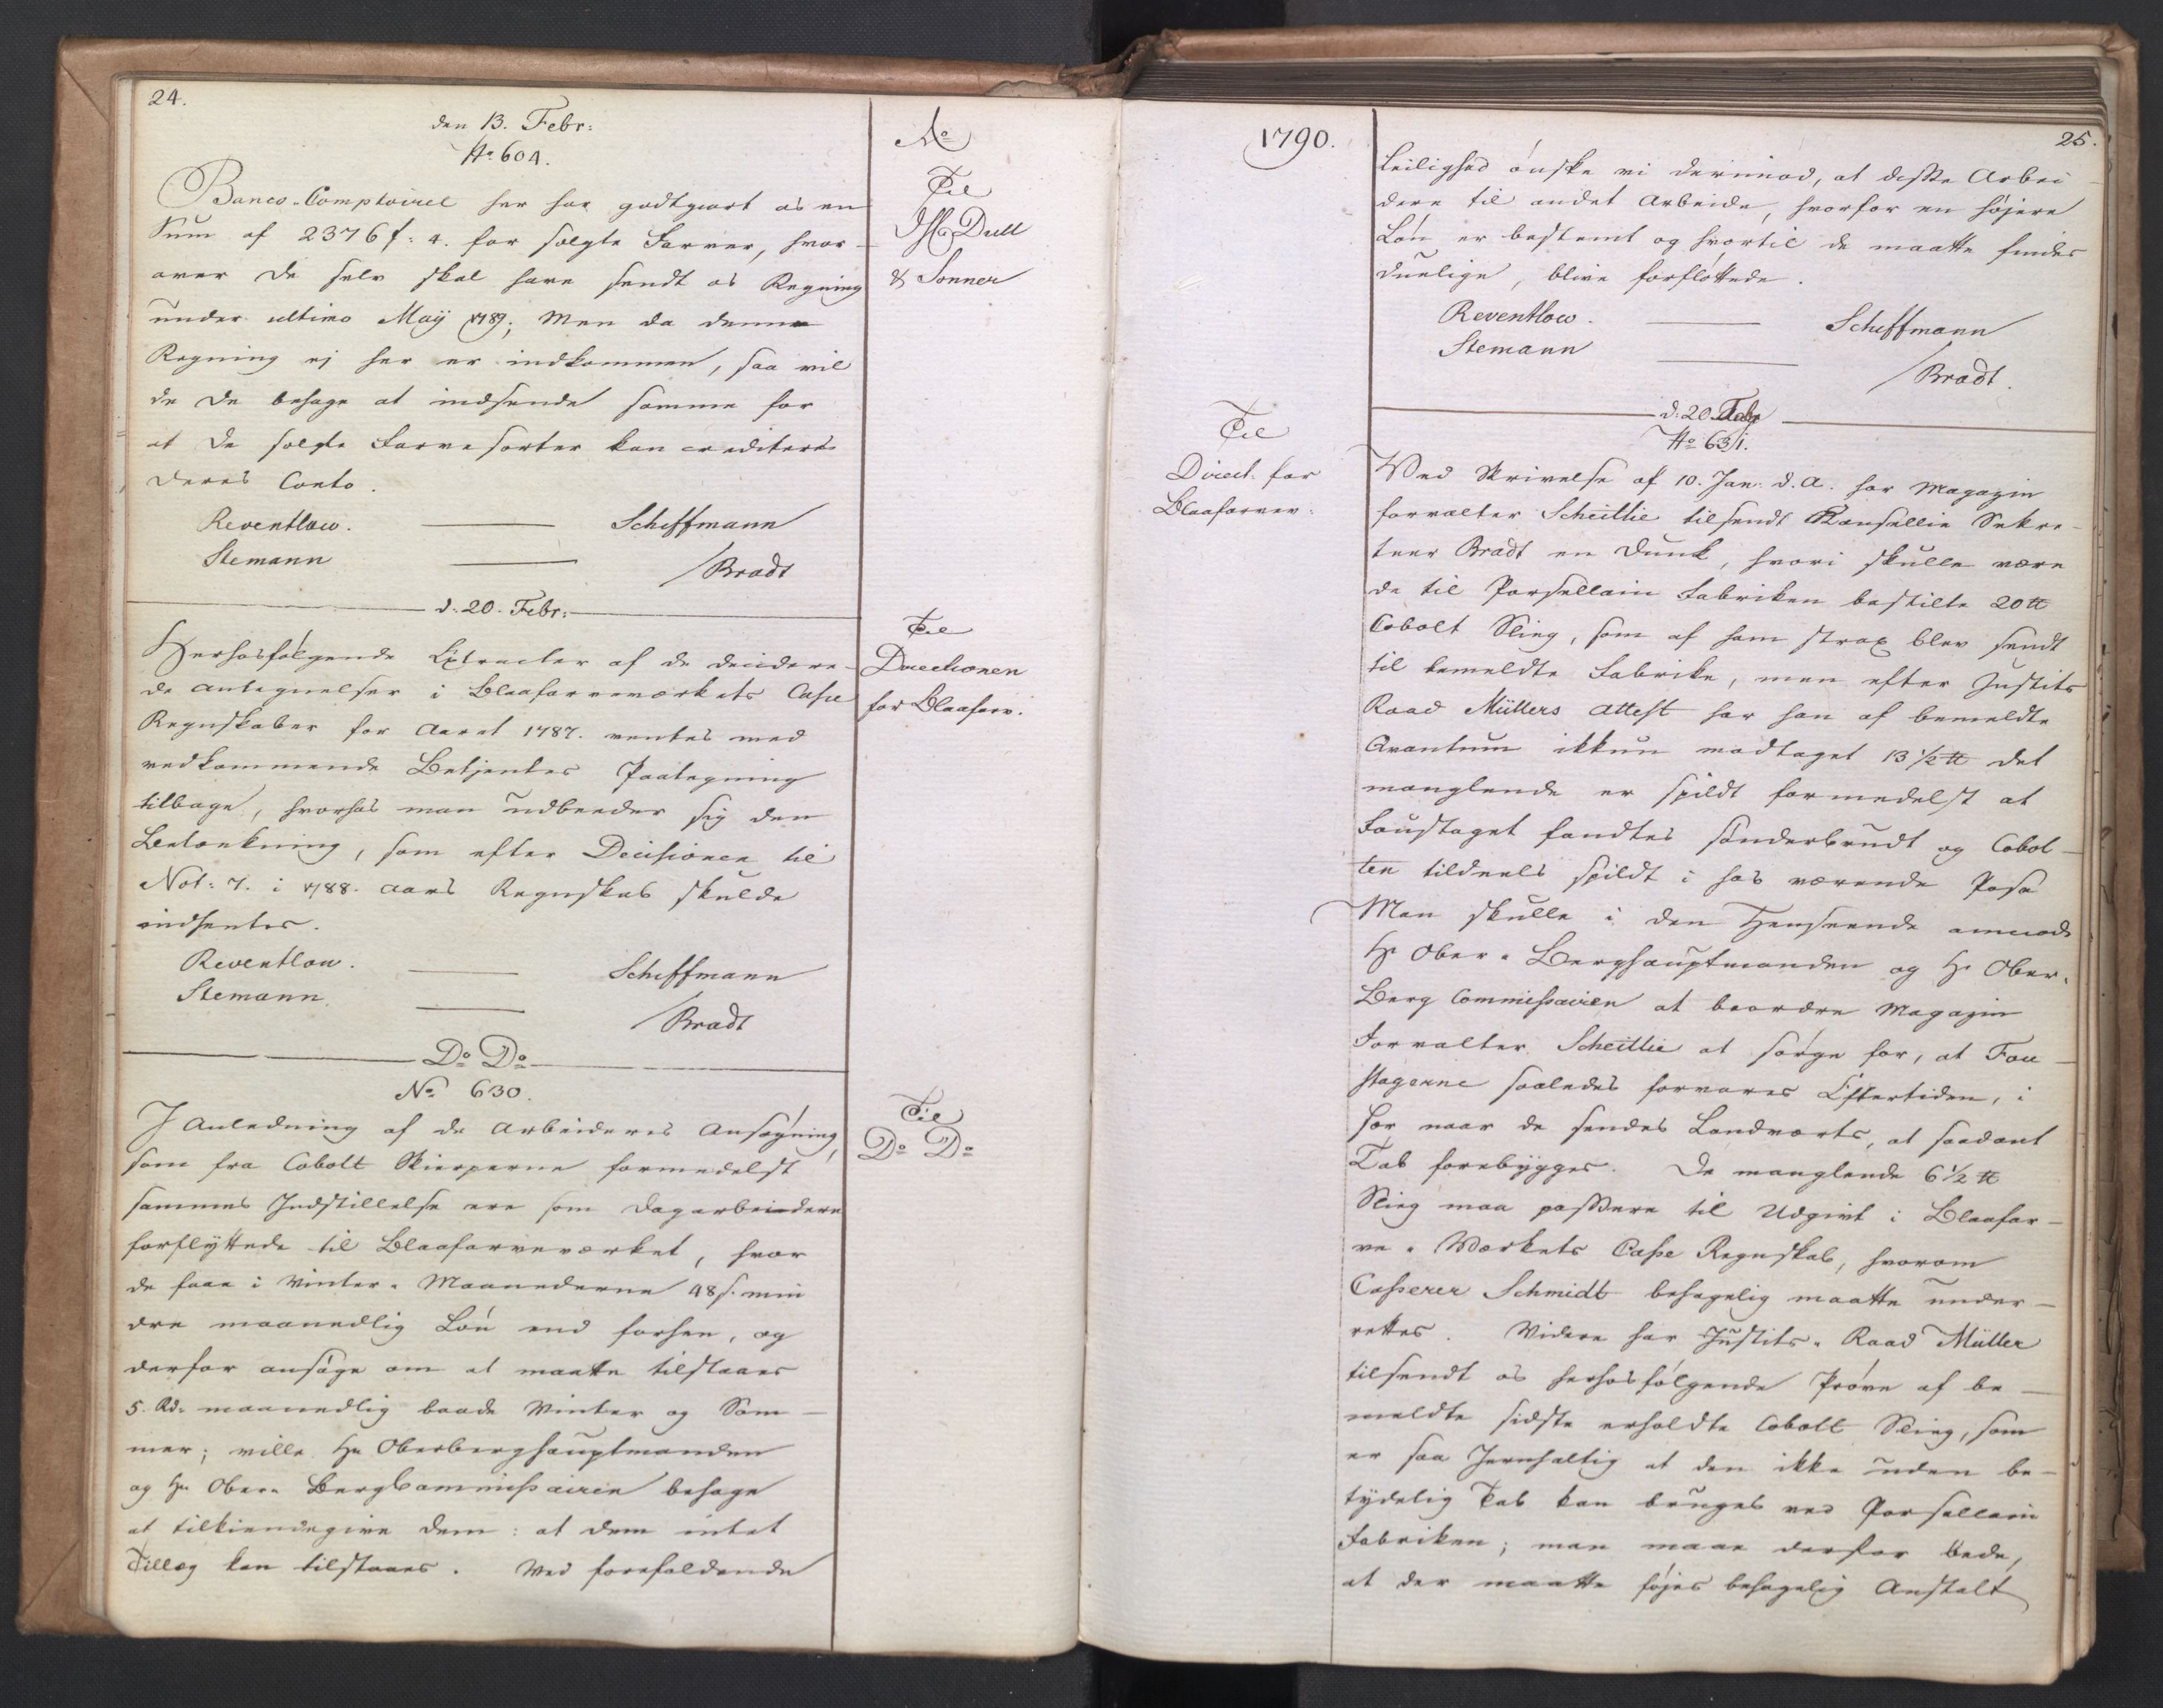 24.
den 13. Febr:
No 604.
Banco-Comptoiret her har godtgiort os en
Sum af 2376 f: 4. for solgte Farver, hvor-
over De selv skal have sendt os Regning
under ultimo Maij 1789; Men da denne
Regning ej her er indkommen, saa vil
de De behage at indsende samme for
at De solgte Farvesorter kan crediteres
Deres Conto.
Reventlow. Schiffmann
Stemann Bradt
Ao
Til
Dull
& Sønner
d: 20. Febr:
Herhosfølgende Extracter af de decidere-
de Antegnelser i Blaafarveværkets Casse
Regnskaber for Aaret 1787. ventes med
vedkommende Betjentes Paategning
tilbage, hvorhos man udbeeder sig den
Betænkning, som efter Decisionen til
Not: 7. i 1788. Aars Regnskab skulde
indhentes.
Reventlow. Schiffmann
Stemann Bradt
Til
Directionen
for Blaafarv.
Do Do
No 630.
I Anledning af de Arbeideres Ansøgning,
som fra Cobolt Skierperne formedelst
sammes Indstillelse ere som Dagarbeidere
forflyttede til Blaafarveværket, hvor
de faae i Vinter-Maanederne 48 s. min
dre maanedlig Løn end forhen, og
derfor ansøge om at maatte tilstaaes
5. Rd. maanedlig baade Vinter og Som-
mer; ville Hr Oberberghauptmanden
og Hr Ober-BergCommissairen behage
at tilkiendegive dem: at dem intet
Tillæg kan tilstaaes. Ved forefaldende
Til
Do Do
1790.
25.
Leilighed ønske vi derimod, at disse Arbei-
dere til andet Arbeide, hvorfor en højere
Løn er bestemt og hvortil de maatte findes
duelige, blive forfløttede.
Reventlow. Schiffmann
Stemann Bradt.
d: 20. Febr
No 631.
Til
Direct: for
Blaafarvev:
Ved Skrivelse af 10. Jan: d. A. har Magazin
forvalter Scheitlie tilsendt Kanselliie Sekre-
teer Bradt en Dunk, hvori skulle være
de til Porsellain Fabriken bestilte 20 ℔
Cobolt Slieg, som af ham strax blev sendt
til bemeldte Fabrike, men efter Justits
Raad Müllers Attest har han af bemeldte
Qvantum ikkun modtaget 13 1/2 ℔ det
manglende er spildt formedelst at
Faustaget fandtes sønderbrudt og Cobol-
ten tildeels spildt i hos værende Pose
Man skulle i den Henseende anmode
Hr Ober-Berghauptmanden og Hr Ober-
Berg Commissairen at beordre Magazin
Forvalter Scheitlie at sørge for, at Fau-
stagerne saaledes forvares Eftertiden, i
sær naar de sendes Landværts, at saadant
Tab forebygges. De manglende 6 1/2 ℔
Slieg maa passere til Udgivt i Blaafar-
ve-Værkets Casse Regnskab, hvorom
Casserer Schmidt behagelig maatte under-
rettes. Videre har Justits-Raad Müller
tilsendt os herhosfølgende Prøve af be-
meldte sidste erholdte Cobolt Slieg, som
er saa Jernhaltig at den ikke uden be-
tydelig Tab kan bruges ved Porsellain
Fabriken; man maae derfor bede,
at der maatte føjes behagelig Anstalt